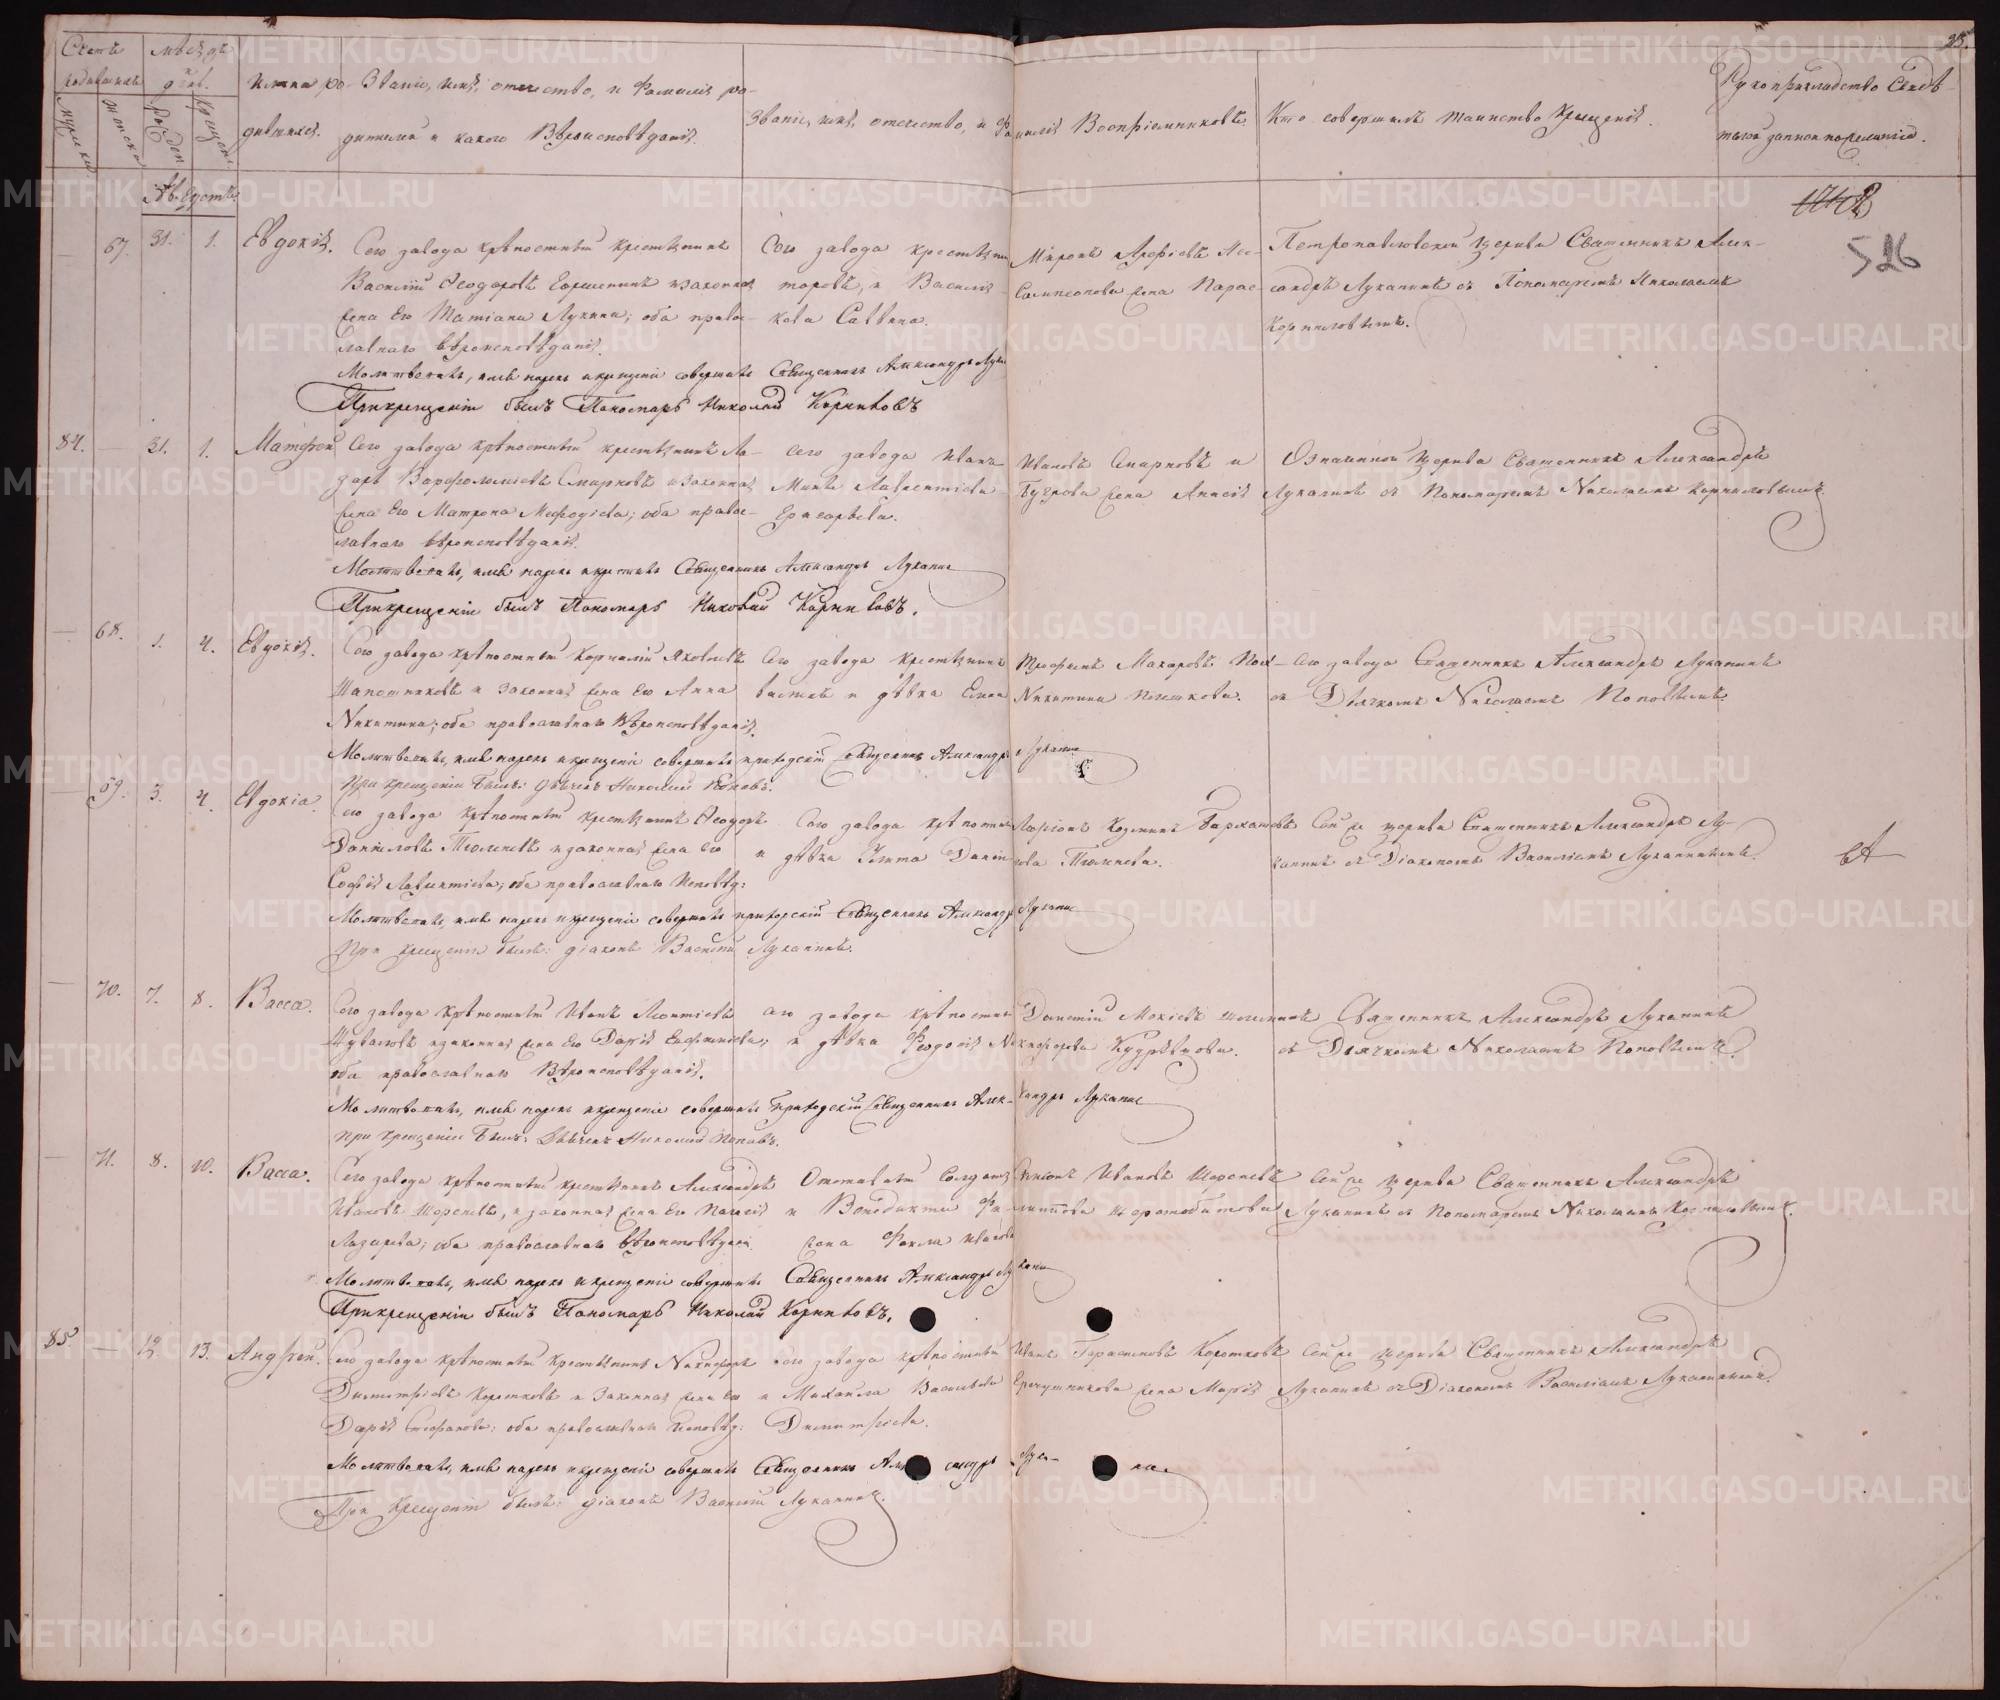 Счетъ родившихся
мужска
женска
Мѣсяцъ и день
Рожден
Крещен
Имена родившихся.
Званіе, имя, отчество, и Фамилія родителей и какого Вѣроисповѣданія.
Званіе, имя, отчество, и Фамилія Воспріемниковъ.
Кто совершалъ таинство Крещенія.
Рукоприкладство Свидѣтелей записи по желанію.
Августъ
526
67. 31. 1. Евдокія.
Сего завода крѣпостный крестьянинъ
Василій Ѳеодоровъ и законная
жена Его Татіана Лукина; оба православнаго вѣроисповѣданія.
Сего завода крестьянинъ Миронъ
и Василія Сампсонова жена
Саввина.
Петропавловской церкви Священникъ Александръ Луканинъ съ Пономаремъ Николаемъ
Корниловымъ.
Молитвовалъ, имя нарекъ и крещеніе совершилъ Священникъ Александръ
При крещеніи былъ Пономарь Николай Корниловъ
84. — 31. 1. Матфей
Сего завода крѣпостный крестьянинъ Лазарь Варфоломеевъ Смирновъ и законная
жена Его Матрона Меѳодіева; оба православнаго вѣроисповѣданія.
Сего завода Иванъ Ивановъ Смирновъ и
Лаврентіева жена Анисія
Григорьева.
Означенной церкви Священникъ Александръ
Луканинъ съ Пономаремъ Николаемъ Корниловымъ.
Молитвовалъ, имя нарекъ и крестилъ Священникъ Александръ Луканинъ
При крещеніи былъ Пономарь Николай Корниловъ.
— 68. 1. 4. Евдокія.
Сего завода крѣпостный Корнилій Яковлевъ
Шапошниковъ и законная жена Его Анна
Никитина; оба православнаго Вѣроисповѣданія.
Сего завода крестьянинъ Трофимъ Макаровъ
и дѣвка Елена Никитина
Сего завода Священникъ Александръ Луканинъ
съ Дьячкомъ Николаемъ Поповымъ.
Молитвовалъ, имя нарекъ и крещеніе совершилъ приходскій Священникъ Александръ Луканинъ
При крещеніи былъ: дьячекъ Николай Поповъ.
— 69. 3. 4. Евдокіа.
Сего завода крѣпостный крестьянинъ Ѳеодоръ
Даниловъ Тюленевъ и законная жена Его
Софія Лаврентіева; оба православнаго исповѣд:
Сего завода крѣпостный Ларіонъ Козминъ
и дѣвка Улита Данилова Тюленева.
Сей же церкви Священникъ Александръ Луканинъ съ Діакономъ Василіемъ Луканинымъ.
Молитвовалъ, имя нарекъ и крещеніе совершилъ приходскій Священникъ Александръ Луканинъ
При крещеніи былъ: діаконъ Василій Луканинъ.
— 70. 7. 8. Васса.
Сего завода крѣпостный Иванъ Леонтіевъ
Шуваловъ и законная жена Его Дарія Евфиміева;
оба православнаго Вѣроисповѣданія.
Сего завода крѣпостный Мокіевъ
и дѣвка Ѳеодосія Никифорова
Священникъ Александръ Луканинъ
съ Дьячкомъ Николаемъ Поповымъ.
Молитвовалъ, имя нарекъ и крещеніе совершилъ Приходскій Священникъ Александръ Луканинъ
При крещеніи былъ: Дьячекъ Николай Поповъ.
— 71. 8. 10. Васса.
Сего завода крѣпостный крестьянинъ Александръ
Ивановъ и законная жена Его
Лазарева; оба православнаго вѣроисповѣданія
Отставный Солдатъ Ивановъ
и Венедикта Филиппова
жена Ѳекла Иванова
Сей же церкви Священникъ Александръ
Луканинъ съ Пономаремъ Николаемъ Корниловымъ.
Молитвовалъ, имя нарекъ и крещеніе совершилъ Священникъ Александръ Луканинъ
При крещеніи былъ Пономарь Николай Корниловъ.
85. — 12. 13. Андрей.
Сего завода крѣпостный крестьянинъ Никифоръ
Димитріевъ Коротковъ и законная жена Его
Дарія Стефанова: оба православнаго исповѣд:
Сего завода крѣпостный Иванъ Герасимовъ Коротковъ
и Михаила Васильева жена Марія
Димитріева.
Сей же церкви Священникъ Александръ
Луканинъ съ Діакономъ Василіемъ Луканинымъ.
Молитвовалъ, имя нарекъ и крещеніе совершилъ Священникъ
При крещеніи былъ: діаконъ Василій Луканинъ.
METRIKI.GASO-URAL.RU